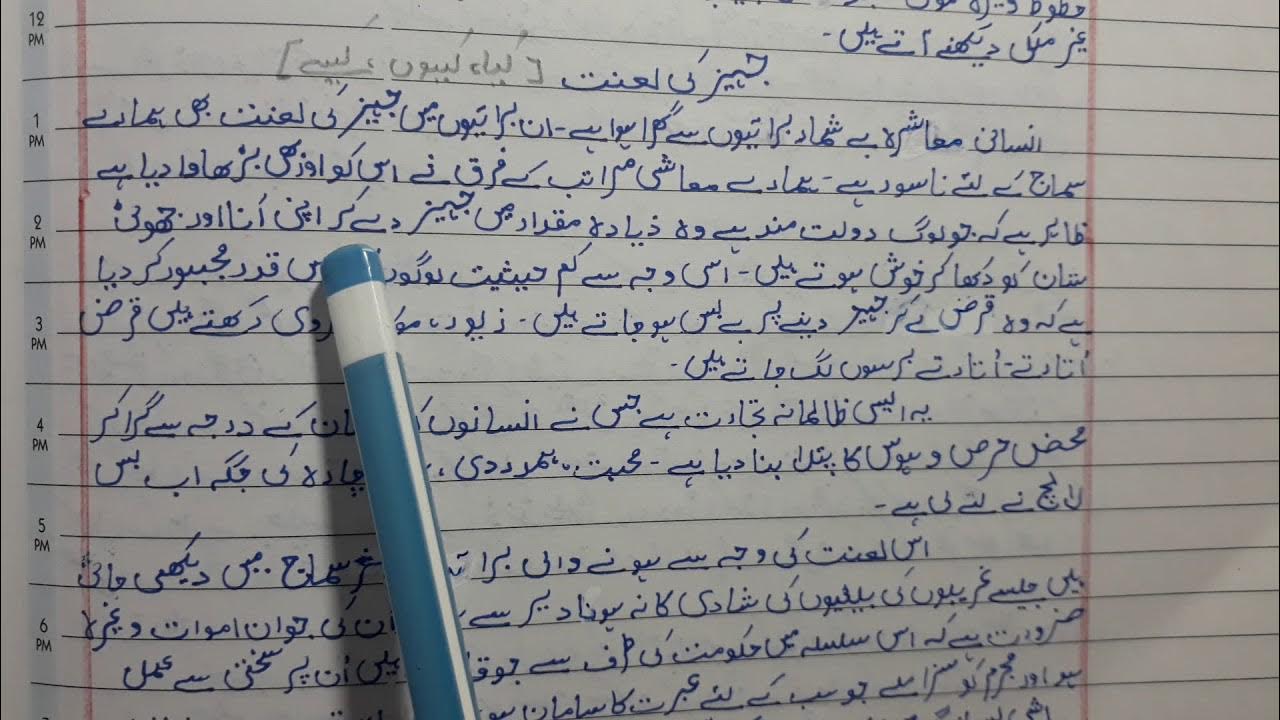 12 PM
خطوط وغیرہ
دیکھنے آتے ہیں۔
جہیز کی لعنت [کیا، کیوں، کیسے]
1 PM
انسانی معاشرہ بے شمار برائیوں سے گھرا ہوا ہے۔ ان برائیوں میں جہیز کی لعنت بھی ہمارے
سماج کے لئے ناسور ہے۔ ہمارے معاشی مراتب کے فرق نے اس کو اور بھی بڑھاوا دیا ہے
2 PM
ظاہر ہے کہ جو لوگ دولت مند ہے وہ ذیادہ مقدار میں جہیز دے کر اپنی اُنا اور جھوٹی
شان کو دکھا کر خوش ہوتے ہیں۔ اسی وجہ سے کم حیثیت لوگوں قدر مجبور کر دیا
3 PM
ہے کہ وہ قرض لے کر جہیز دینے پر بے بس ہو جاتے ہیں۔ زیور، رکھتے ہیں قرض
اُتارتے۔اُتارتے برسوں لگ جاتے ہیں۔
4 PM
یہ ایسی ظالمانہ تجارت ہے جس نے انسانوں کے درجہ سے گرا کر
محض حرص و ہوس کا پتلا بنا دیا ہے۔ محبت، ہمدردی، چارہ کی جگہ اب بس
لالچ نے لے لی ہے۔
5 PM
اس لعنت کی وجہ سے ہونے والی سماج میں دیکھی جاتی
ہیں جیسے غریبوں کی بیٹیوں کی شادی کا نہ ہونا دیر سے اُن کی جوان اموات وغیرہ
6 PM
ضرورت ہے کہ اس سلسلہ میں حکومت کی طرف سے جو ہیں اُن پر سختی سے عمل
ہو اور مجرم کو سزا ملے جو سب کے لئے عبرت کا سامان